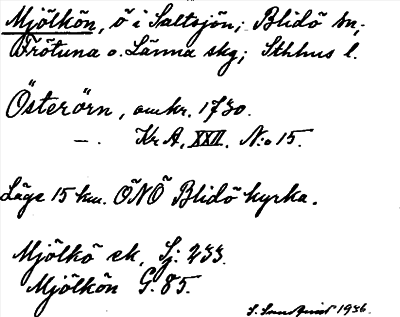 Mjölkön, ö i Saltsjön; Blidö sn,
Frötuna o. Länna skg; Sthlms l.
Österörn, omkr. 1730.
—. Kr A, XXII. N:o 15.
Läge 15 km. ÖNÖ Blidö kyrka.
Mjölkö ek, Sj. 233.
Mjölkön G. 85.
1936.